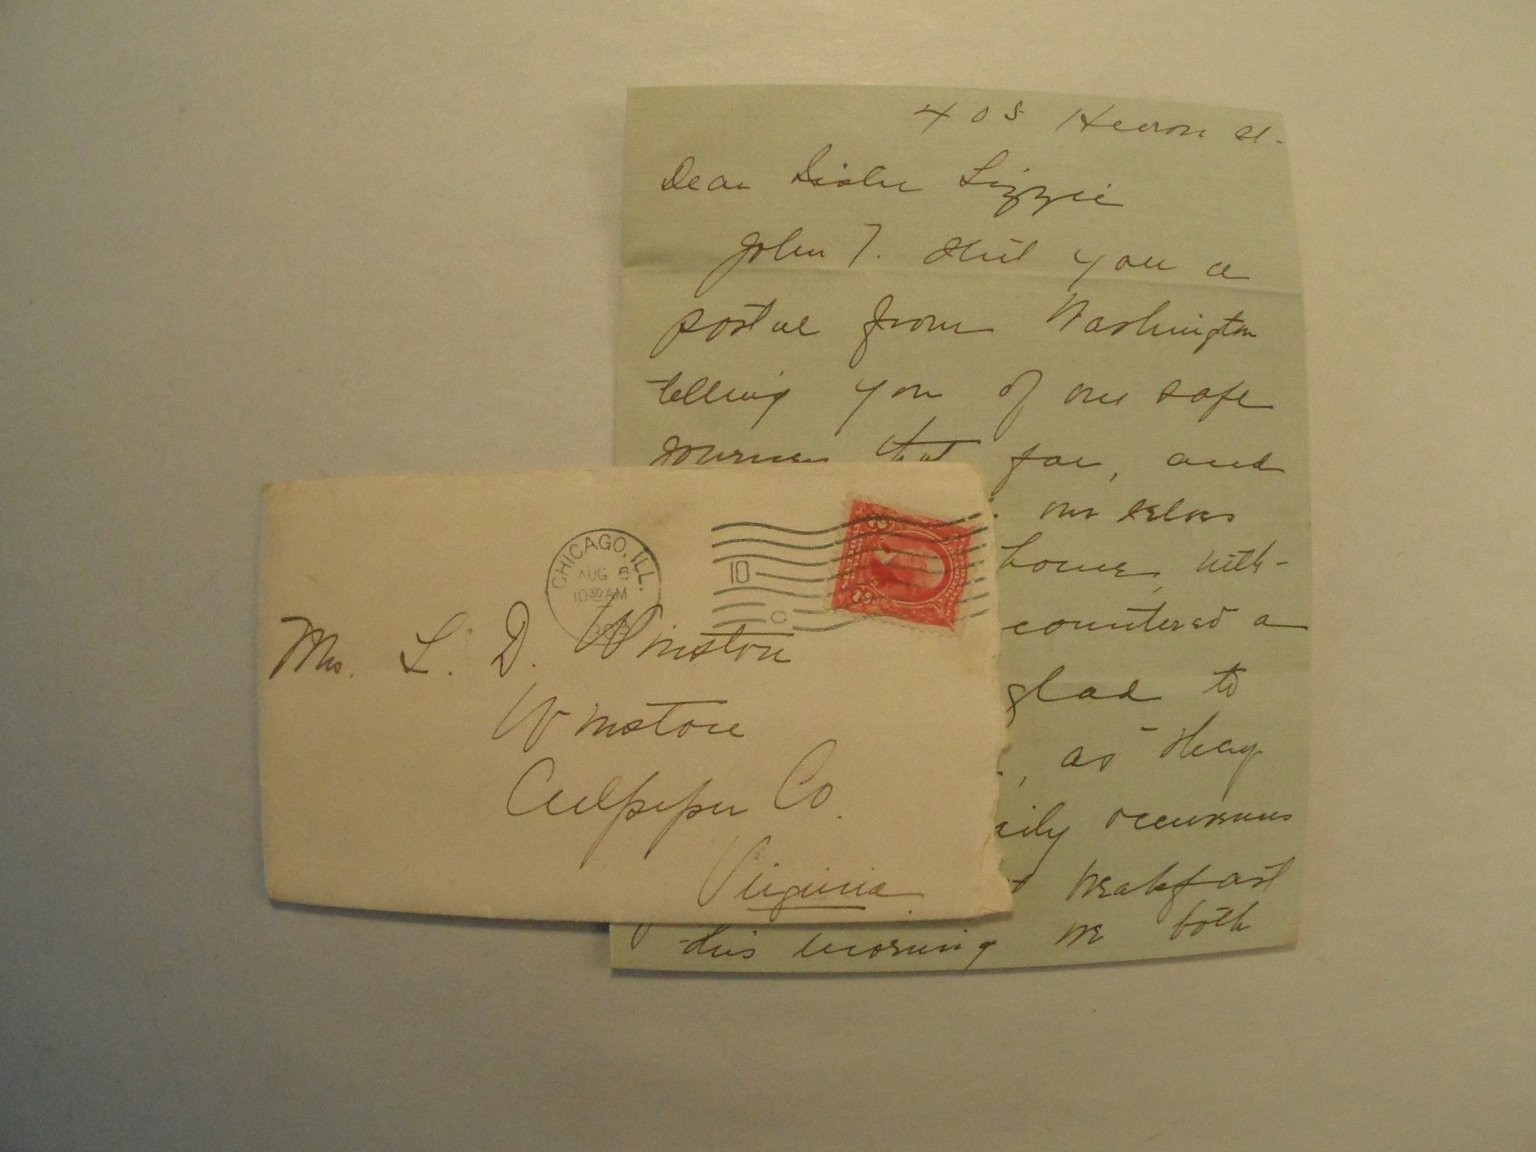 408 Heron St.
Dear Sister Lizzie
John T. sent you a
postal from Washington
telling you of our safe
journey that far, and
our selves
home, with-
countered a
glad to
, as they
aily occurrences
breakfast
this morning we both
CHICAGO, ILL.
AUG 6
10 30 AM
10
C
Mrs. L. D. Winston
Winston
Culpeper Co.
Virginia.